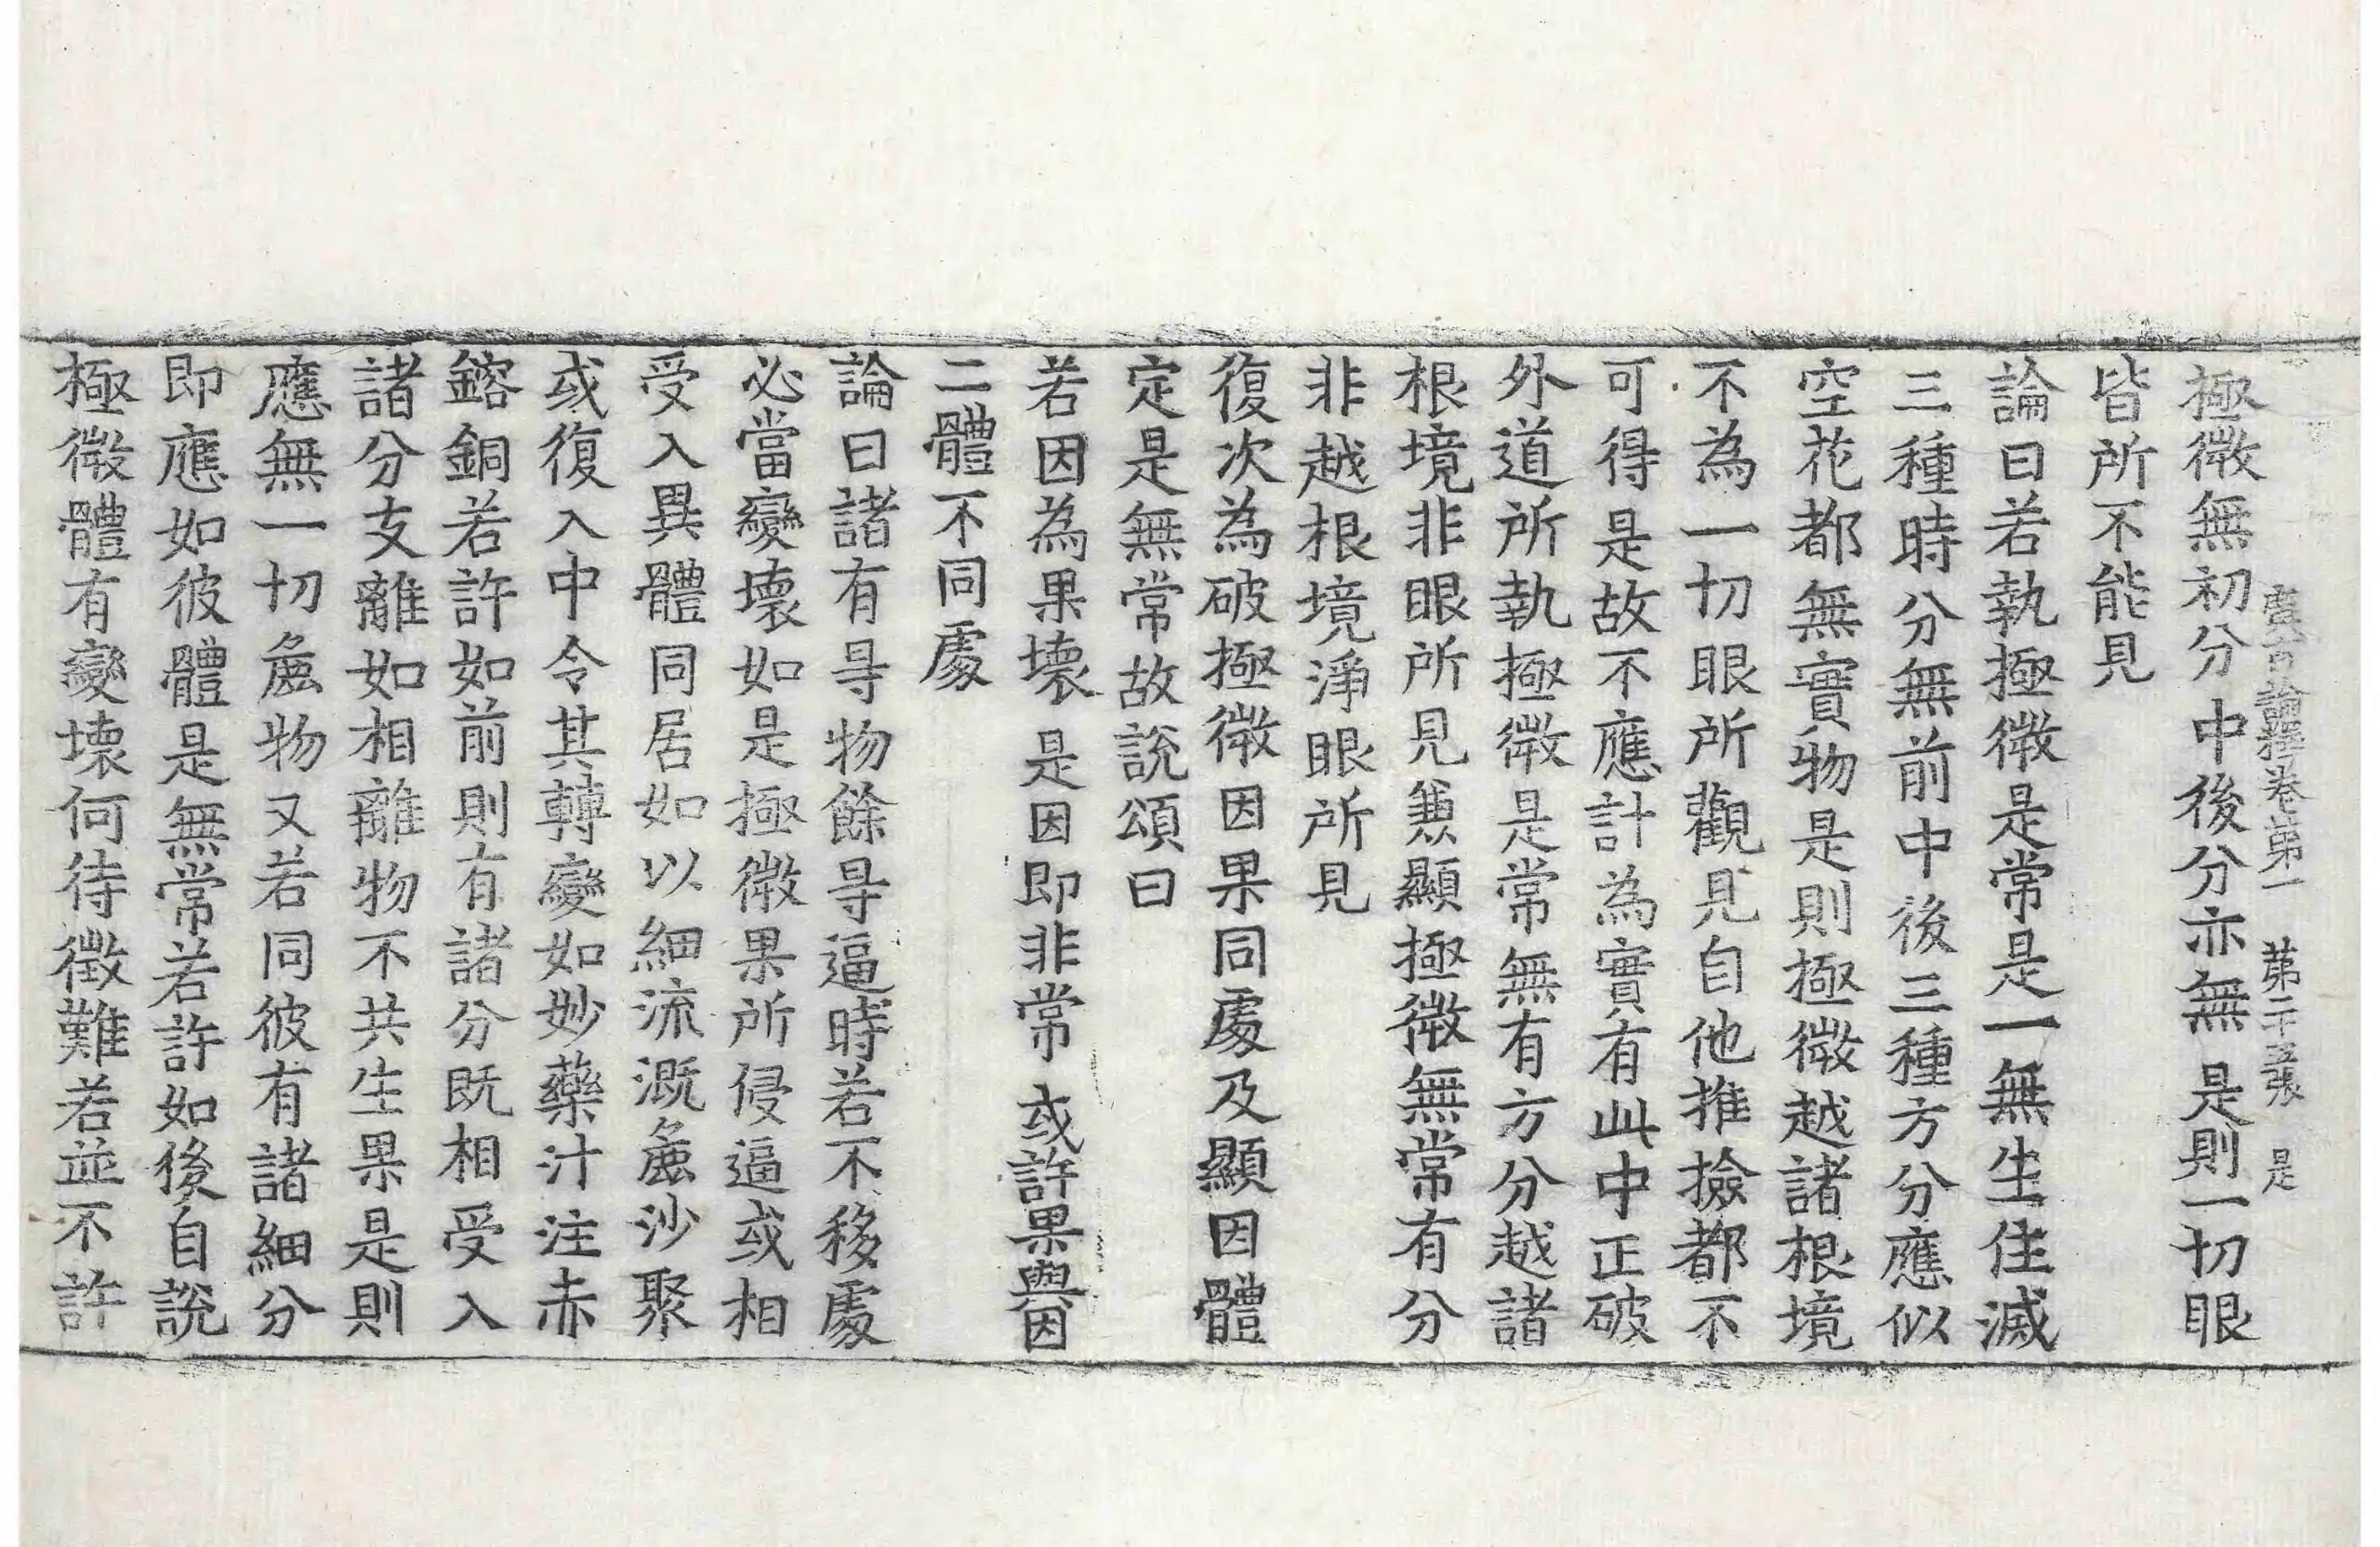 廣百論釋卷第一 第二十五張 是
極微無初分 中後分亦無 是則一切眼
皆所不能見
論曰若執極微是常是一無生住滅
三種時分無前中後三種方分應似
空花都無實物是則極微越諸根境
不為一切眼所觀見自他推撿都不
可得是故不應計為實有此中正破
外道所執極微是常無有方分越諸
根境非眼所見兼顯極微無常有分
非越根境淨眼所見
復次為破極微因果同處及顯因體
定是無常故說頌曰
若因為果壞 是因即非常 或許果與因
二體不同處
論曰諸有㝵物餘㝵逼時若不移處
必當變壞如是極微果所侵逼或相
受入異體同居如以細流溉麁沙聚
或復入中令其轉變如妙藥汁注赤
鎔銅若許如前則有諸分既相受入
諸分支離如相離物不共生果是則
應無一切麁物又若同彼有諸細分
即應如彼體是無常若許如後自說
極微體有變壞何待徵難若並不許